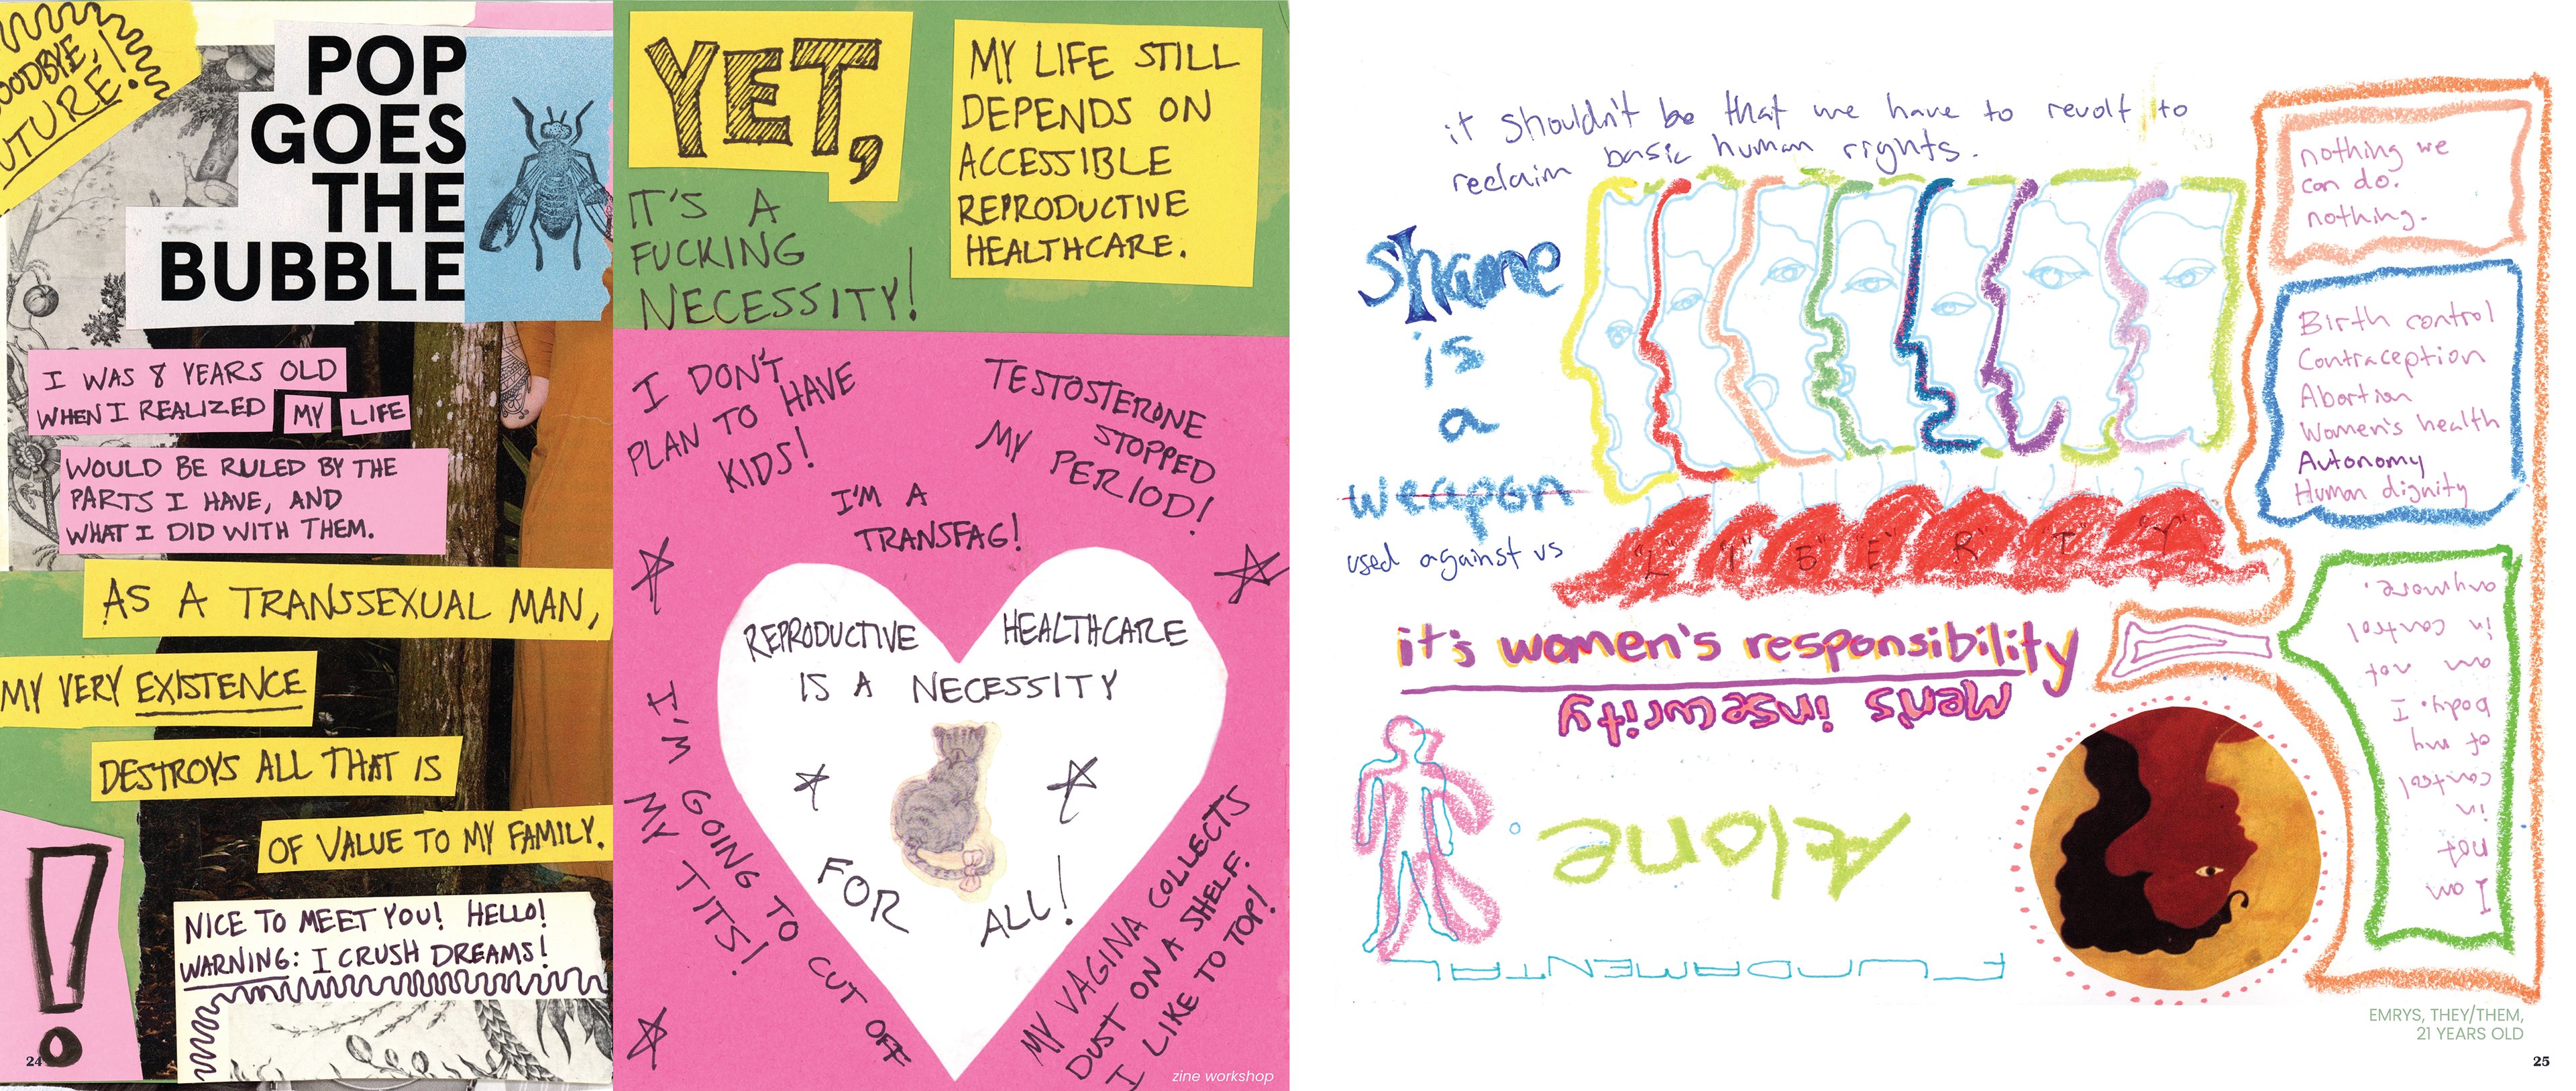 GOODBYE,
FUTURE!
POP
GOES
THE
BUBBLE
I WAS 8 YEARS OLD
WHEN I REALIZED MY LIFE
WOULD BE RULED BY THE
PARTS I HAVE, AND
WHAT I DID WITH THEM.
AS A TRANSSEXUAL MAN,
MY VERY EXISTENCE
DESTROYS ALL THAT IS
OF VALUE TO MY FAMILY.
!
NICE TO MEET YOU! HELLO!
WARNING: I CRUSH DREAMS!
24
YET,
IT'S A
FUCKING
NECESSITY!
MY LIFE STILL
DEPENDS ON
ACCESSIBLE
REPRODUCTIVE
HEALTHCARE.
I DON'T
PLAN TO HAVE
KIDS!
TESTOSTERONE
STOPPED
MY PERIOD!
I'M A
TRANSFAG!
REPRODUCTIVE HEALTHCARE
IS A NECESSITY
FOR ALL!
I'M GOING TO CUT OFF
MY TITS!
MY VAGINA COLLECTS
DUST ON A SHELF.
I LIKE TO TOP!
zine workshop
it shouldn't be that we have to revolt to
reclaim basic human rights.
shame
is
a
weapon
used against us
"L" "I" "B" "E" "R" "T" "Y"
it's women's responsibility
Mens insecurity
Alone
FUNDAMENTAL
nothing we
can do.
nothing.
Birth control
Contraception
Abortion
Women's health
Autonomy
Human dignity
I am
not
in
control
of my
body. I
am not
in control
anymore.
EMRYS, THEY/THEM,
21 YEARS OLD
25